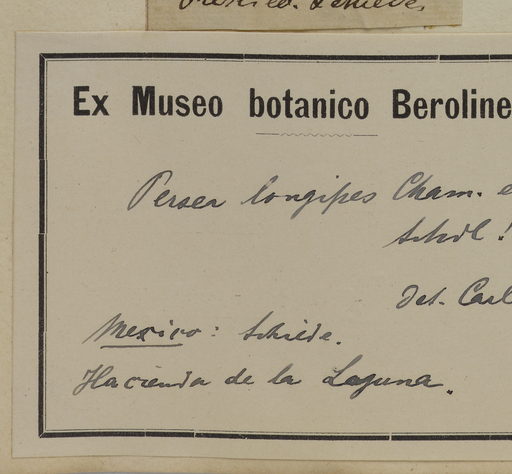 Mexico. Schiede.
Ex Museo botanico Beroline
Persea longipes Cham. e
Schdl!
det. Carl
Mexico: Schiede.
Hacienda de la Laguna.